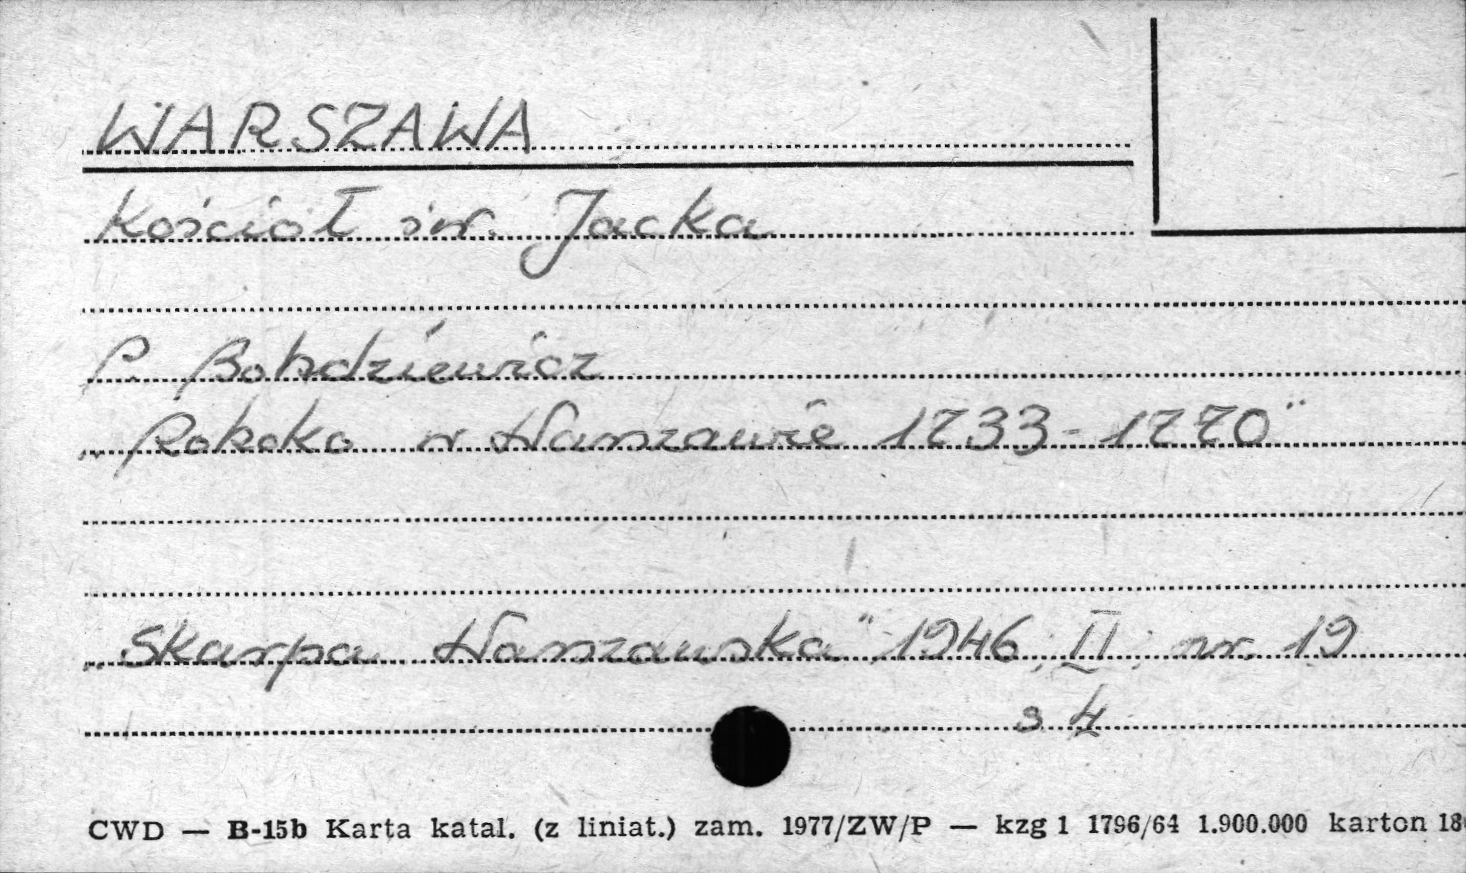 WARSZAWA
Kościół św. Jacka
P. Bohdziewicz
„Rokoko w Warszawie 1733-1770"
„Skarpa Warszawska" 1946, II, nr. 19
s 4
CWD — B-15b Karta katal. (z liniat.) zam. 1977/ZW/P — kzg 1 1796/64 1.900.000 karton 18